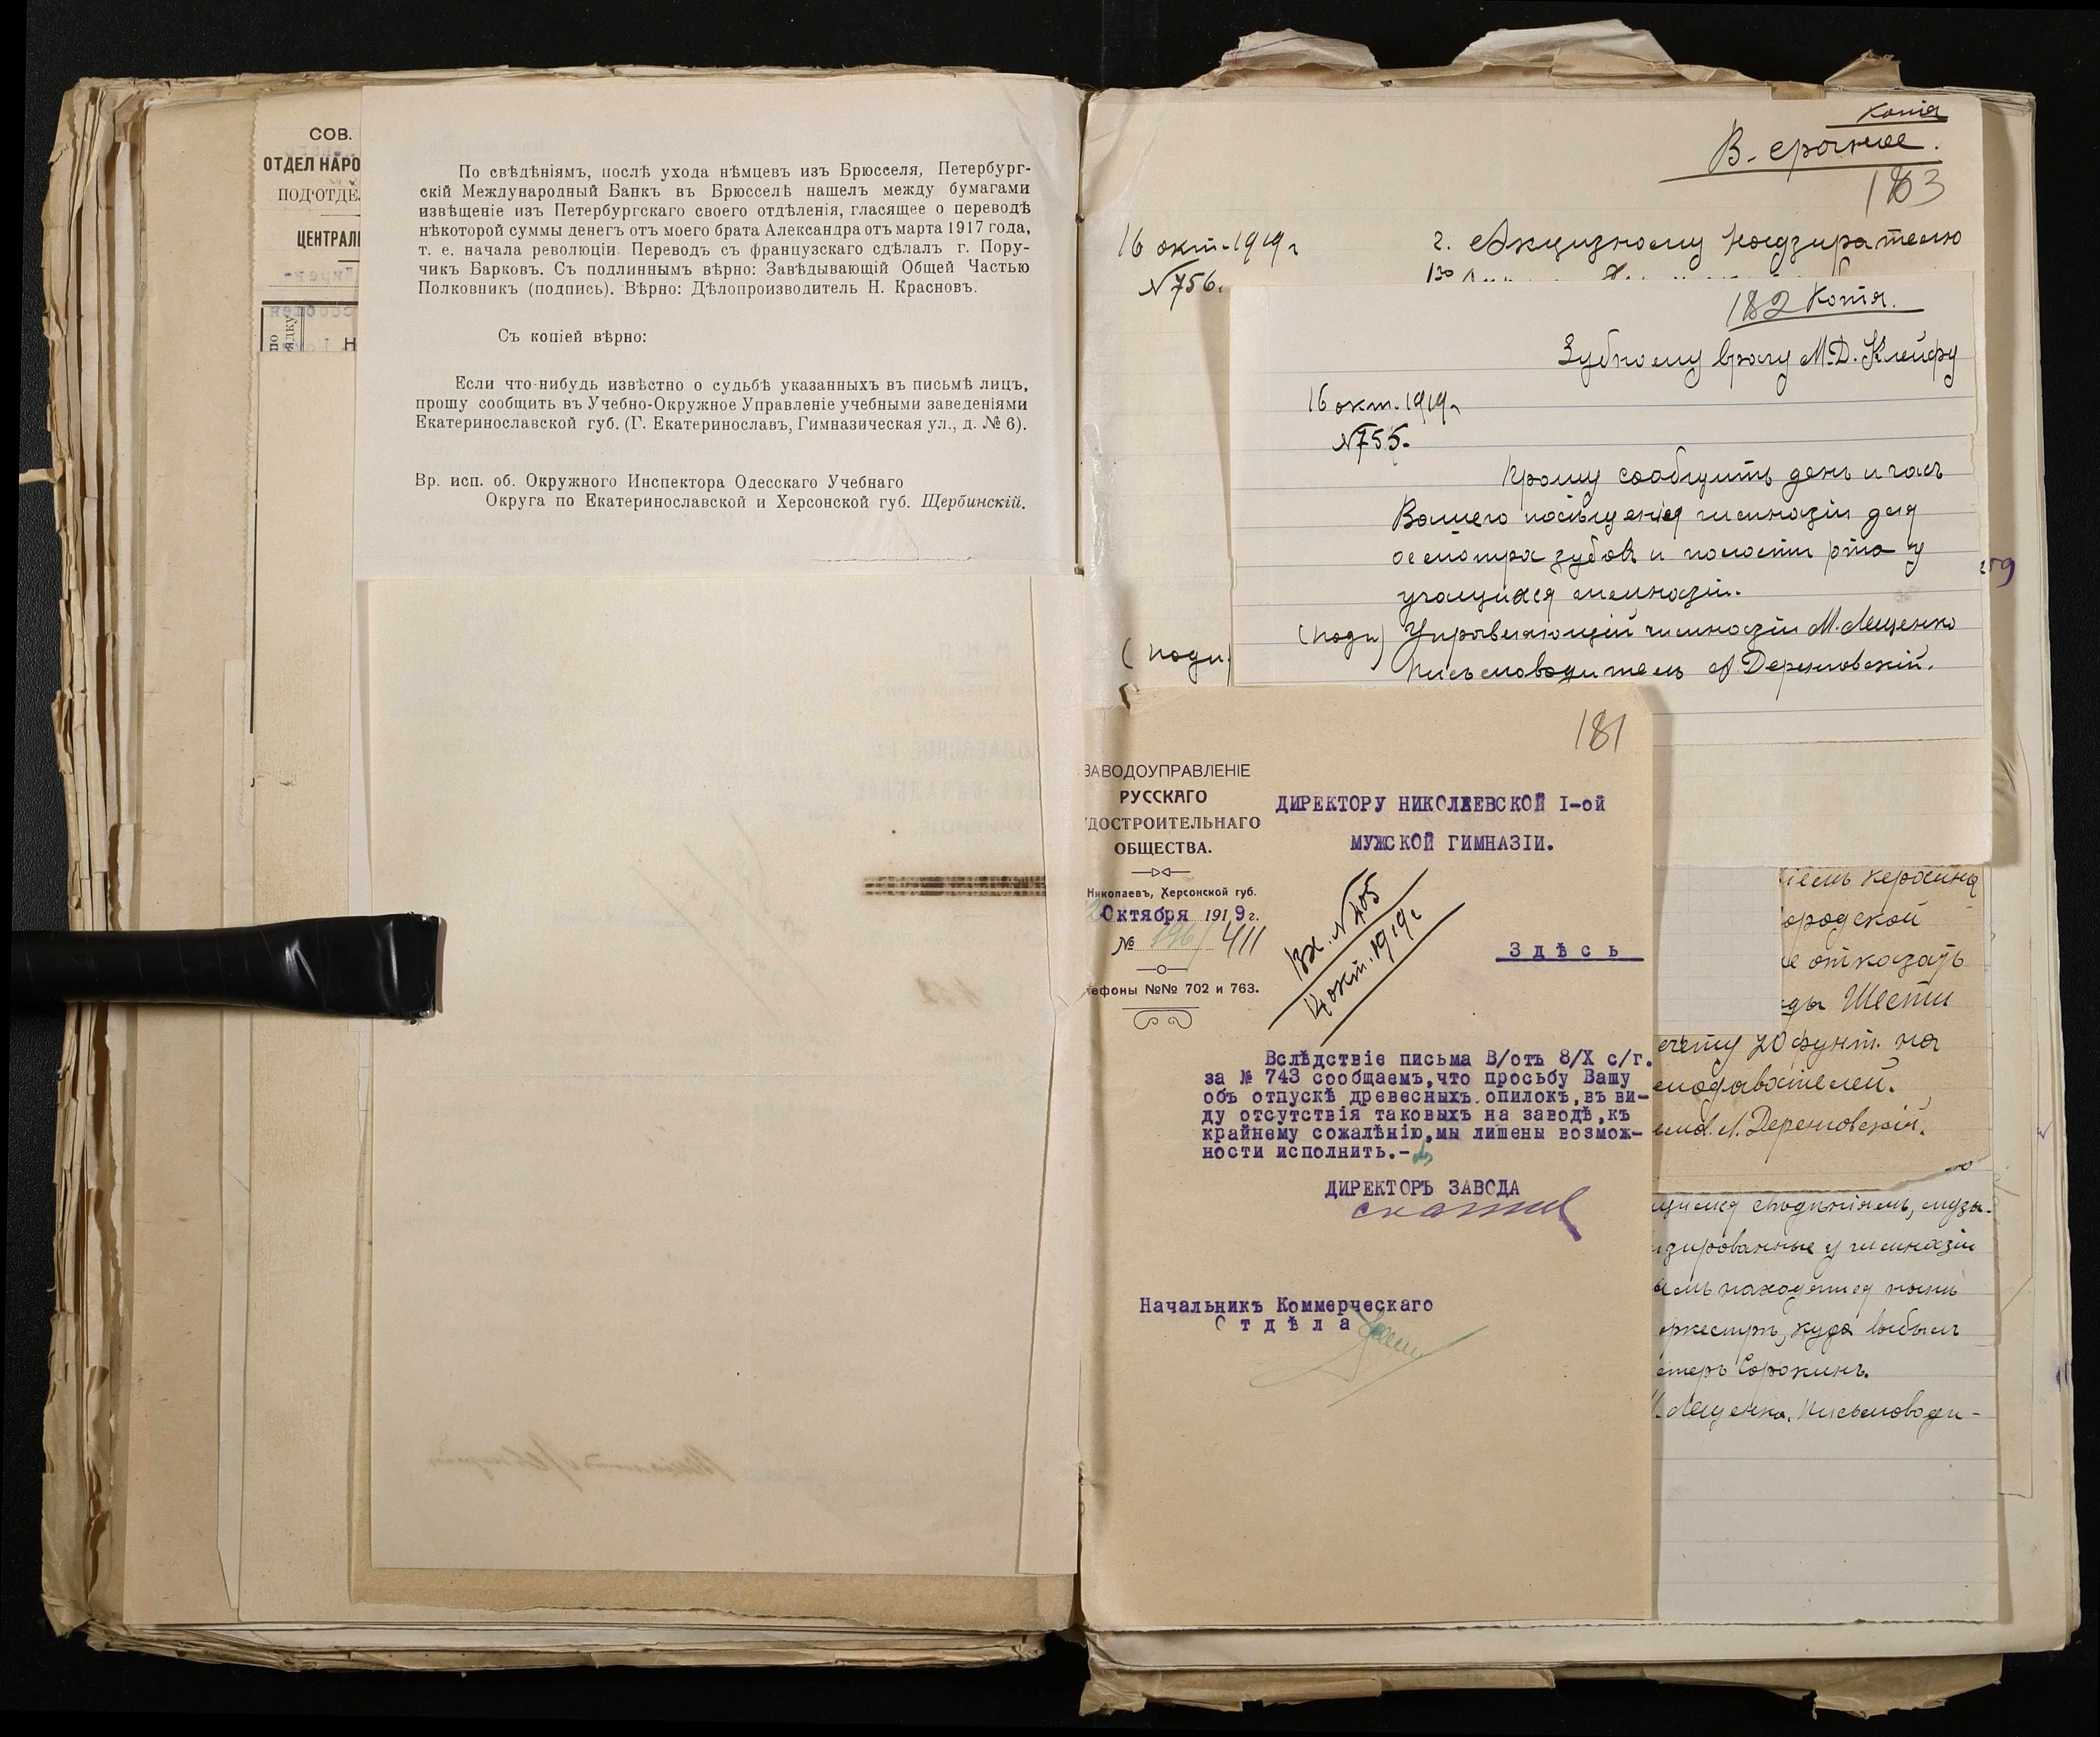 СОВ.
ОТДЕЛ НАРО
ПОД'ОТДЕ
ЦЕНТРАЛ
по
ядку
Н
По свѣдѣніямъ, послѣ ухода нѣмцевъ изъ Брюсселя, Петербург-
скій Международный Банкъ въ Брюсселѣ нашелъ между бумагами
извѣщеніе изъ Петербургскаго своего отдѣленія, гласящее о переводѣ
нѣкоторой суммы денегъ отъ моего брата Александра отъ марта 1917 года,
т. е. начала революціи. Переводъ съ французскаго сдѣлалъ г. Пору-
чикъ Барковъ. Съ подлиннымъ вѣрно: Завѣдывающій Общей Частью
Полковникъ (подпись). Вѣрно: Дѣлопроизводитель Н. Красновъ.
Съ копіей вѣрно:
Если что-нибудь извѣстно о судьбѣ указанныхъ въ письмѣ лицъ,
прошу сообщить въ Учебно-Окружное Управленіе учебными заведеніями
Екатеринославской губ. (Г. Екатеринославъ, Гимназическая ул., д. № 6).
Вр. исп. об. Окружного Инспектора Одесскаго Учебнаго
Округа по Екатеринославской и Херсонской губ. Щербинскій.
копія
В. срочное.
183
16 окт. 1919 г
№ 756.
г. Акцизному Надзирателю
(подп)
182 Копія.
Зубному врачу М.Д. Клейфу
16 окт. 1919 г
№ 755.
Прошу сообщить день и часъ
Вашего посѣщенія гимназіи для
осмотра зубовъ и полости рта у
учащихся гимназіи.
(подп) Управляющій гимназіи М. Лещенко
Письмоводитель А. Дереновскій.
181
ЗАВОДОУПРАВЛЕНІЕ
РУССКАГО
УДОСТРОИТЕЛЬНАГО
ОБЩЕСТВА.
Николаевъ, Херсонской губ.
Октября 1919 г.
№ 411
ефоны №№ 702 и 763.
ДИРЕКТОРУ НИКОЛАЕВСКОЙ I-ой
МУЖСКОЙ ГИМНАЗІИ.
Вх. № 405
14 окт. 1919 г
Здѣсь
Вслѣдствіе письма В/отъ 8/X с/г.
за № 743 сообщаемъ,что просьбу Вашу
объ отпускѣ древесныхъ опилокъ,въ ви-
ду отсутствія таковыхъ на заводѣ,къ
крайнему сожалѣнію,мы лишены возмож-
ности исполнить.-
ДИРЕКТОРЪ ЗАВОДА
Начальникъ Коммерческаго
Отдѣла
керосина
ородской
е отказать
Шести
20 фунт. на
еподавателей.
А. Дереновскій.
свѣдѣніямъ, музы-
у гимназіи
находятся нынѣ
оркестръ, куда выбылъ
Сорокинъ.
Лещенко, Письмоводи-